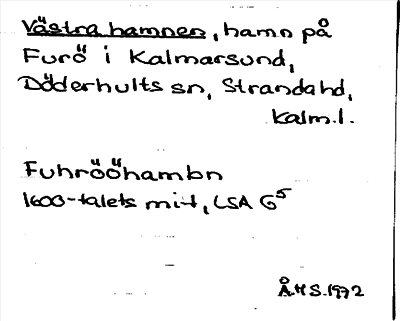 Västra hamnen, hamn på
Furö i Kalmarsund,
Döderhults sn, Strandahd,
Kalm.l.
Fuhrööhambn
1600-talets mitt, LSA G5
Å.H S.1972